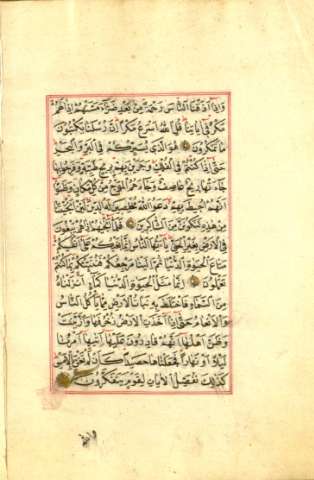 وَاِذَا اَذَقْنَا النَّاسَ رَحْمَةً مِنْ بَعْدِ ضَرَّاءَ مَسَّتْهُمْ اِذَا لَهُمْ
مَكْرٌ فِي اٰيَاتِنَا قُلِ اللّٰهُ اَسْرَعُ مَكْرًا اِنَّ رُسُلَنَا يَكْتُبُونَ
مَا تَمْكُرُونَ هُوَ الَّذِي يُسَيِّرُكُمْ فِي الْبَرِّ وَالْبَحْرِ
حَتّٰى اِذَا كُنْتُمْ فِي الْفُلْكِ وَجَرَيْنَ بِهِمْ بِرِيحٍ طَيِّبَةٍ وَفَرِحُوا بِهَا
جَاءَتْهَا رِيحٌ عَاصِفٌ وَجَاءَهُمُ الْمَوْجُ مِنْ كُلِّ مَكَانٍ وَظَنُّوا
اَنَّهُمْ اُحِيطَ بِهِمْ دَعَوُا اللّٰهَ مُخْلِصِينَ لَهُ الدِّينَ لَئِنْ اَنْجَيْتَنَا
مِنْ هٰذِهِ لَنَكُونَنَّ مِنَ الشَّاكِرِينَ فَلَمَّا اَنْجٰيهُمْ اِذَا هُمْ يَبْغُونَ
فِي الْاَرْضِ بِغَيْرِ الْحَقِّ يَا اَيُّهَا النَّاسُ اِنَّمَا بَغْيُكُمْ عَلٰى اَنْفُسِكُمْ
مَتَاعَ الْحَيٰوةِ الدُّنْيَا ثُمَّ اِلَيْنَا مَرْجِعُكُمْ فَنُنَبِّئُكُمْ بِمَا كُنْتُمْ
تَعْمَلُونَ اِنَّمَا مَثَلُ الْحَيٰوةِ الدُّنْيَا كَمَاءٍ اَنْزَلْنَاهُ
مِنَ السَّمَاءِ فَاخْتَلَطَ بِهِ نَبَاتُ الْاَرْضِ مِمَّا يَأْكُلُ النَّاسُ
وَالْاَنْعَامُ حَتّٰى اِذَا اَخَذَتِ الْاَرْضُ زُخْرُفَهَا وَازَّيَّنَتْ
وَظَنَّ اَهْلُهَا اَنَّهُمْ قَادِرُونَ عَلَيْهَا اَتٰيهَا اَمْرُنَا
لَيْلًا اَوْ نَهَارًا فَجَعَلْنَاهَا حَصِيدًا كَاَنْ لَمْ تَغْنَ بِالْاَمْسِ
كَذٰلِكَ نُفَصِّلُ الْاٰيَاتِ لِقَوْمٍ يَتَفَكَّرُونَ